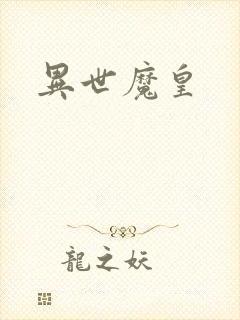 異世魔皇
龍之妖